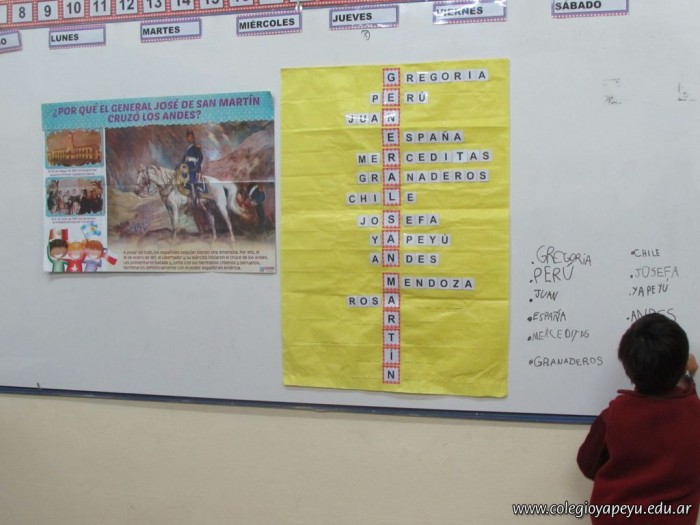 8 9 10 11 12 13 14 15
LUNES
MARTES
MIÉRCOLES
JUEVES
VIERNES
SÁBADO
¿POR QUÉ EL GENERAL JOSÉ DE SAN MARTÍN
CRUZÓ LOS ANDES?
GREGORIA
PERÚ
JUAN
ESPAÑA
MERCEDITAS
GRANADEROS
CHILE
JOSEFA
YAPEYÚ
ANDES
MENDOZA
ROSA
GENERAL SAN MARTÍN
.GREGORIA
PERÚ
.JUAN
.ESPAÑA
.MERCEDITAS
.GRANADEROS
.CHILE
.JOSEFA
.YAPEYÚ
.ANDES
www.colegioyapeyu.edu.ar